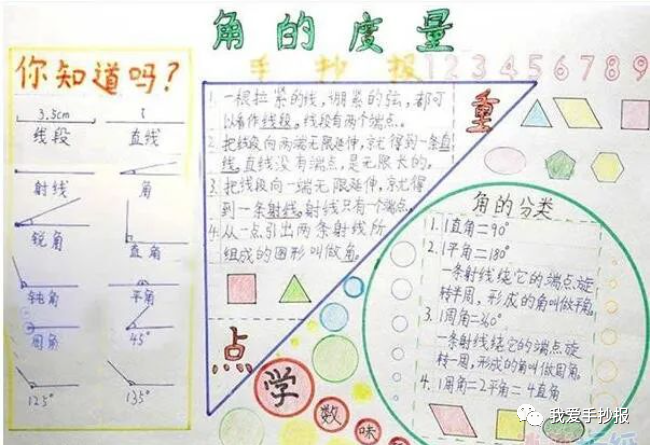 角的度量
手抄报
1 2 3 4 5 6 7 8 9
你知道吗？
3.5cm
线段
直线
射线
角
锐角
直角
钝角
平角
周角
45°
125°
135°
重
1. 一根拉紧的线，绷紧的弦，都可
以看作线段，线段有两个端点。
2. 把线段向两端无限延伸，就得到一条直
线，直线没有端点，是无限长的。
3. 把线段向一端无限延伸，就得
到一条射线，射线只有一个端点。
4. 从一点引出两条射线所
组成的图形叫做角。
点
角的分类
1. 1直角=90°
2. 1平角=180°
一条射线绕它的端点旋
转半周，形成的角叫做平角。
3. 1周角=360°
一条射线绕它的端点旋
转一周，形成的角叫做周角。
4. 1周角=2平角=4直角
学
数
味
我爱手抄报